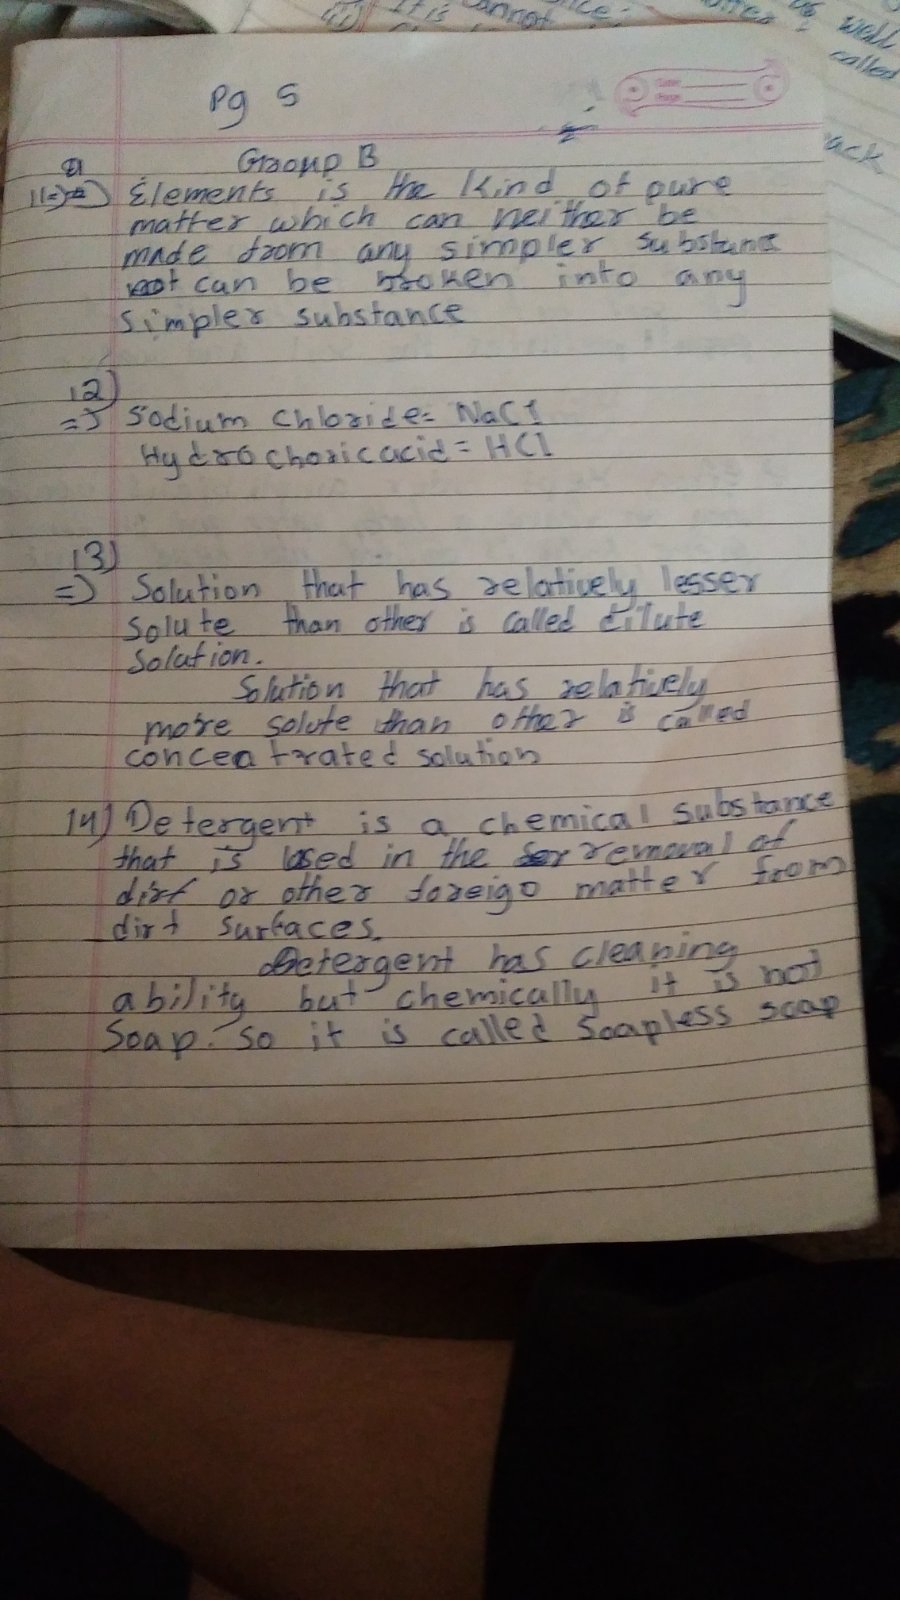 It is cannot
of well
called
ack
Pg 5
Group B
11=) Elements is the kind of pure
matter which can neither be
made from any simpler substance
not can be broken into any
simpler substance
12)
=> Sodium Chloride= NaCl
Hydrochoric acid = HCl
13)
=) Solution that has relatively lesser
solute than other is called dilute
solution.
Solution that has relatively
more solute than other is called
concentrated solution
14) Detergent is a chemical substance
that is used in the removal of
dirt or other foreign matter from
dirt surfaces.
Detergent has cleaning
ability but chemically it is not
Soap. So it is called Soapless soap